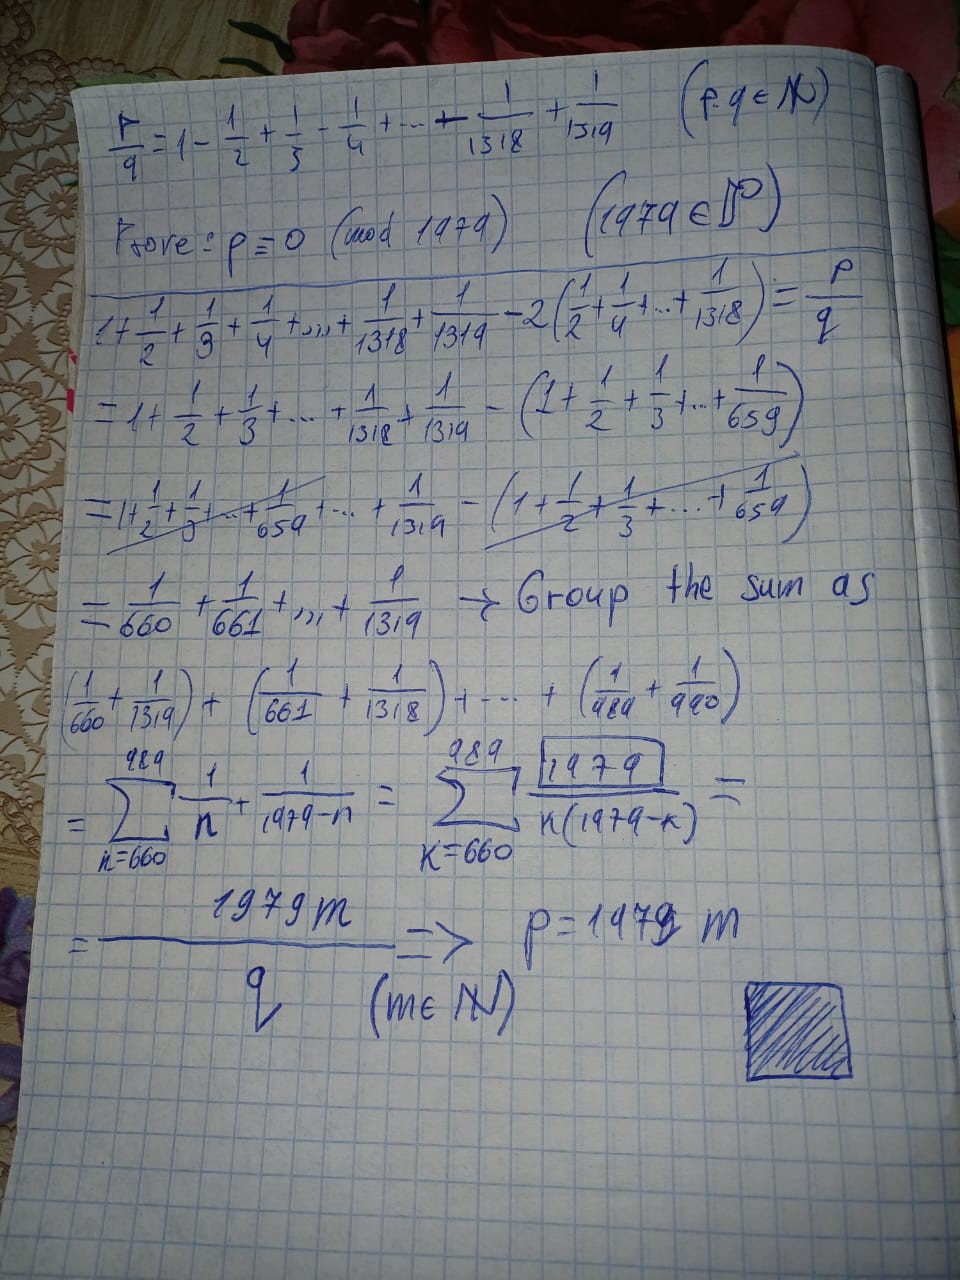 p/q = 1 - 1/2 + 1/3 - 1/4 + ... + - 1/1318 + 1/1319 (p, q ∈ ℕ)
Prove: p ≡ 0 (mod 1979) (1979 ∈ ℙ)
1 + 1/2 + 1/3 + 1/4 + ... + 1/1318 + 1/1319 - 2(1/2 + 1/4 + ... + 1/1318) = p/q
= 1 + 1/2 + 1/3 + ... + 1/1318 + 1/1319 - (1 + 1/2 + 1/3 + ... + 1/659)
= 1 + 1/2 + 1/3 + ... + 1/659 + ... + 1/1319 - (1 + 1/2 + 1/3 + ... + 1/659)
= 1/660 + 1/661 + ... + 1/1319 → Group the sum as
(1/660 + 1/1319) + (1/661 + 1/1318) + ... + (1/989 + 1/990)
= ∑_{n=660}^{989} 1/n + 1/(1979-n) = ∑_{k=660}^{989} 1979/(k(1979-k)) =
= 1979m/q => p = 1979 m
(m ∈ ℕ)